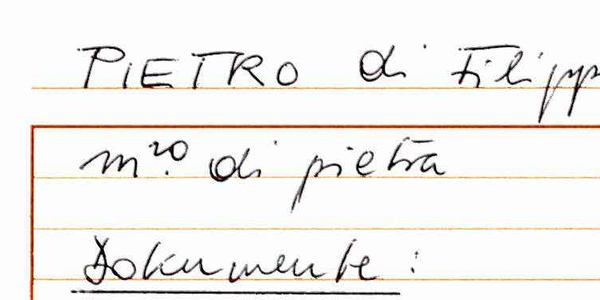 PIETRO di Filipp
m.ro di pietra
Dokumente: